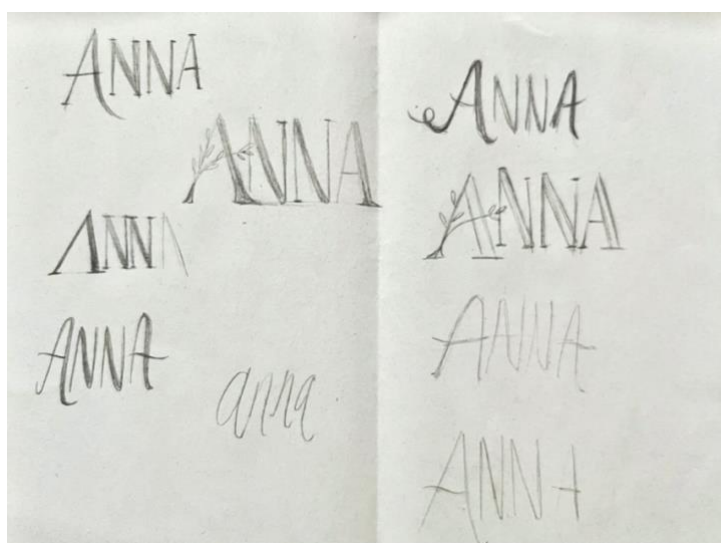 ANNA
ANNA
ANNA
ANNA
anna
ANNA
ANNA
ANNA
ANNA